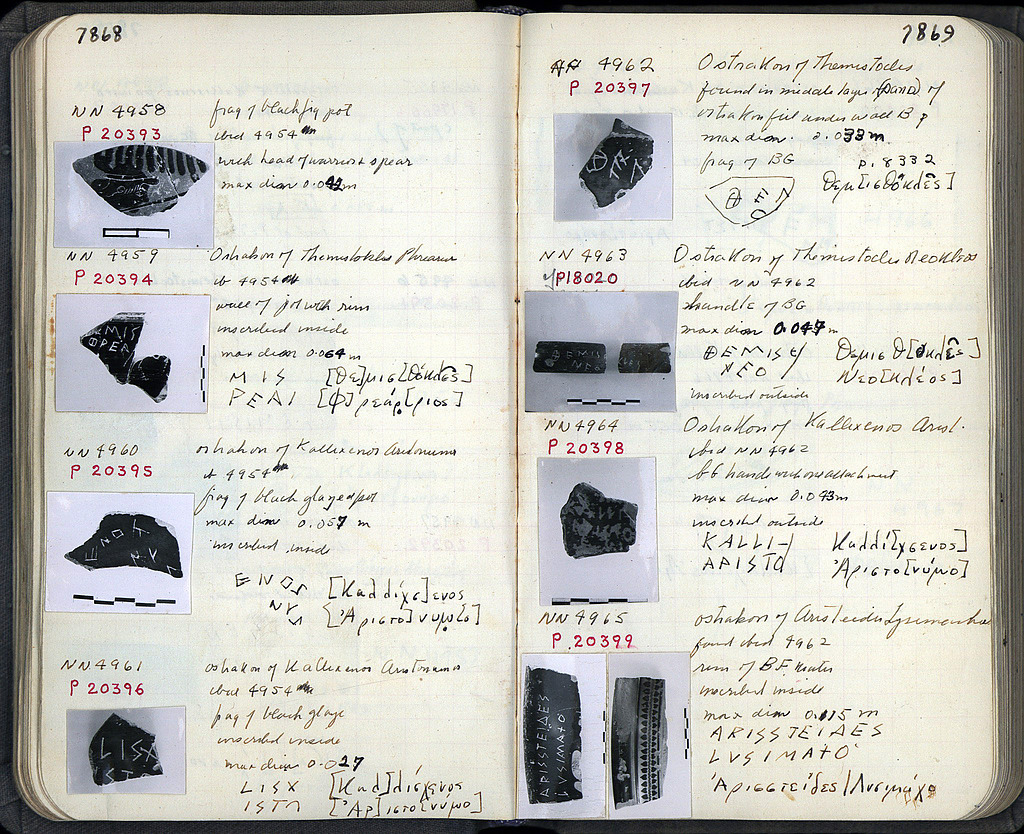 7868
NN 4958
P 20393
frag of black fig pot
ibid 4954
with head of warrior & spear
max diam 0.042 m
NN 4959
P 20394
Ostrakon of Themistokles Phrearrios
ib 4954
wall of pot with rim
inscribed inside
max diam 0.064 m
ΜΙΣ [Θε]μισ[θοκλε̑ς]
ΡΕΑΙ [Φ]ρεάρ[ριος]
NN 4960
P 20395
ostrakon of Kallixenos Aristonumo
ib 4954
frag of black glazed pot
max diam 0.057 m
inscribed inside
ΕΝΟΣ [Καλλίχσ]ενος
ΝΥ [Ἀριστο]νύμο
NN 4961
P 20396
ostrakon of Kallixenos Aristonumos
ibid 4954
frag of black glaze
inscribed inside
max diam 0.027
LISX [Καλ]λίσχενος
ΙΣΤΟ [Ἀρ]ιστο[νυμο]
7869
NN 4962
P 20397
Ostrakon of Themistocles
found in middle layer (sand) of
ostrakon fill under wall B
max diam. 0.033 m
frag of BG p. 8332
ΘΕΙ
Θεμ[ισθοκλε̑ς]
NN 4963
P18020
Ostrakon of Themistocles Neokleos
ibid NN 4962
handle of BG
max diam 0.047 m
ΘΕΜΙΣΘ Θεμισθ[οκλε̑ς]
ΝΕΟ Νεο[κλέος]
inscribed outside
NN 4964
P 20398
Ostrakon of Kallixenos Arist.
ibid NN 4962
BG handle with one attachment
max diam 0.043 m
inscribed outside
KALLI Καλλί[χσενος]
ΑΡΙΣΤΟ Ἀριστο[νύμο]
NN 4965
P 20399
ostrakon of Aristeides Lysimacho
found ibid 4962
rim of B.F. krater
inscribed inside
max diam 0.115 m
ARISSTEIDES
LVSIMAΧO
Ἀρισστείδες/Λυσιμάχο